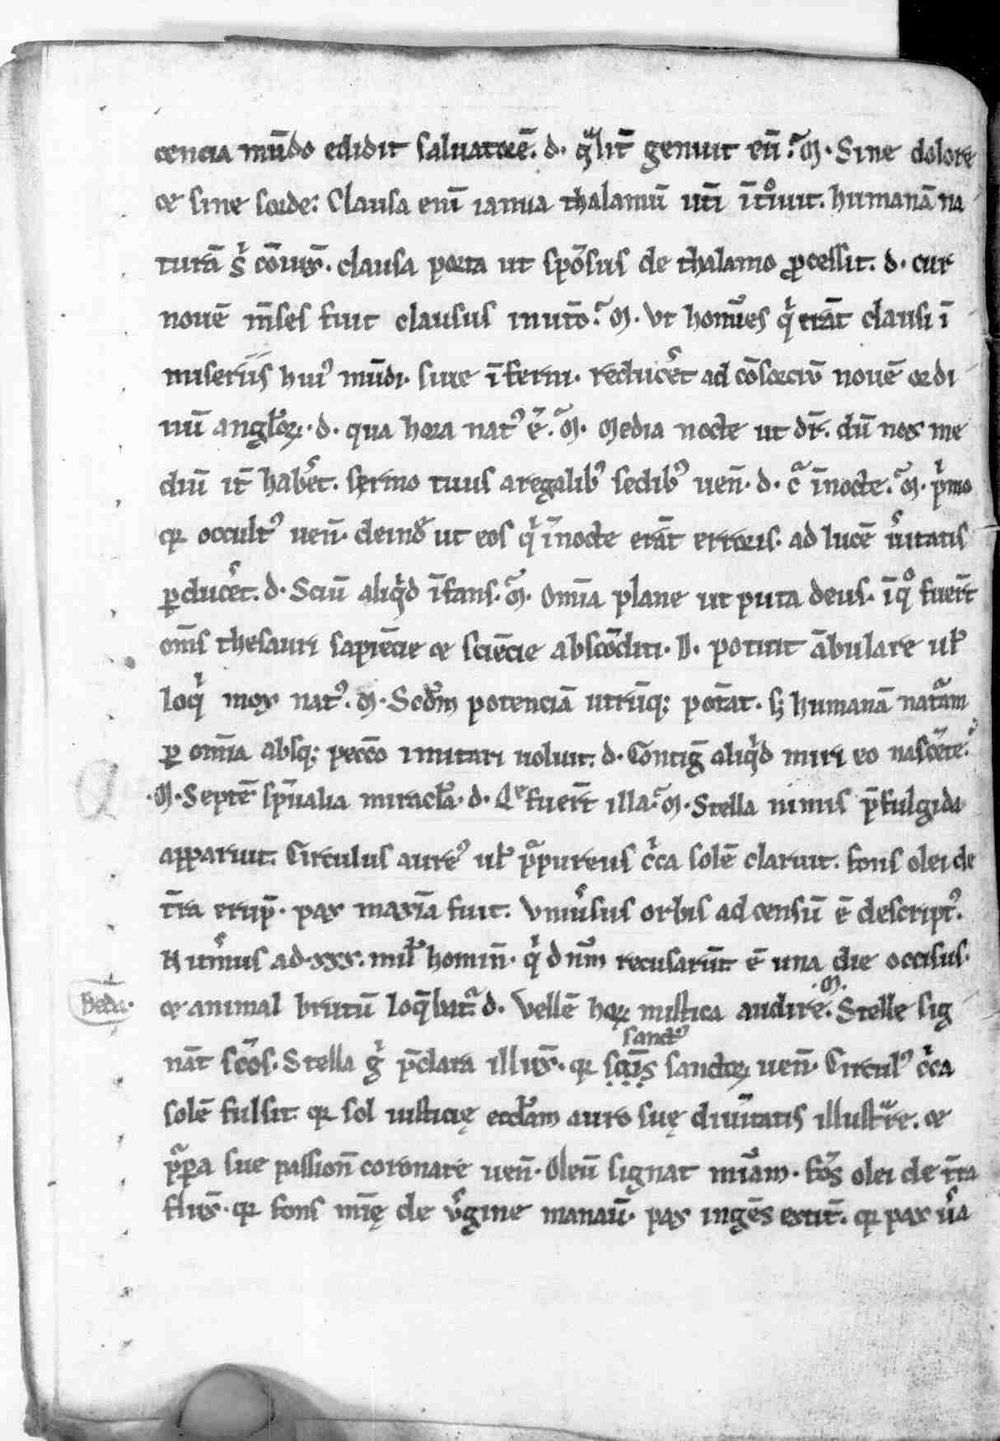 cencia mūdo edidit saluatorē. d. qͣlit̄ genuit eū. M. Sine dolore
et sine sorde: Clausa enī ianua thalamū utī īt°iuit. humanā na
turā sͥ cōiūx̄. clausa porta ut spōsus de thalamo ꝓcessit. d. cur
nouē m̄ses fuit clausus inutō. M. Vt homīes qͥ erāt clausi ī
miseriis huiꝰ mūdi. siue īferni. reducēt ad cōsorciū nouē ordi
nū angl̄oꝝ. d. qua hora natꝰ ē. M. Media nocte ut dr̄. dū nox me
diū it̄ hab̄et. sermo tuus aregalibꝰ sedibꝰ uen̄. d. cͣ īnocte. M. pͥmo
qꝛ occultꝰ uen̄. deind̄ ut eos qͥ īnocte erāt erroris. ad lucē ūitatis
ꝑducēt. d. Sciū aliqͥd īfans. M. Omīa plane ut puta deus. īq° fuer̄t
om̄s thesauri sapiēcie et sciēcie abscōditi. D. potuit ābulare ul̄
loqͥ mox natꝰ. M. Scd̄m potenciā utriq; potāt. sꝫ humanā natͣam
ꝑ omīa absq; pecc̄o imitari uoluit. d. Contiḡ aliqͥd miri eo nascēte.
M. Septē sp̄ualia miracl̄a. d. Qͤ fuer̄t illa. M. Stella nimis p̄fulgida
apparuit. Circulus aureꝰ ul̄ pͣpureus cͥca solē claruit. fons olei de
t̄ra erup̄. pax maxīa fuit. Vniūsus orbis ad censū ē descriptꝰ.
Numͤus ad .xxx. mil̄ homin̄. qͥ dnͫm recusarūt ē una die occisus.
Beda.
et animal brutū loq̄batͬ. d. Vellē hoꝝ mistica audire. M. Stelle sig
nāt sc̄os. Stella gͥ p̄clara illūx̄. qꝛ sc̄īs sanctꝰ sanctoꝝ uen̄. Circulꝰ cͥca
solē fulsit. qꝛ sol iusticię eccl̄am auro suę diuīitatis illustͣre. et
pͣpͣa sue passion̄ coronare uen̄. Oleū signat mīam. fōs olei de t̄ra
flūx̄. qꝛ fons mīę de ūgine manaū. pax ingēs extit̄. qꝛ pax ūa